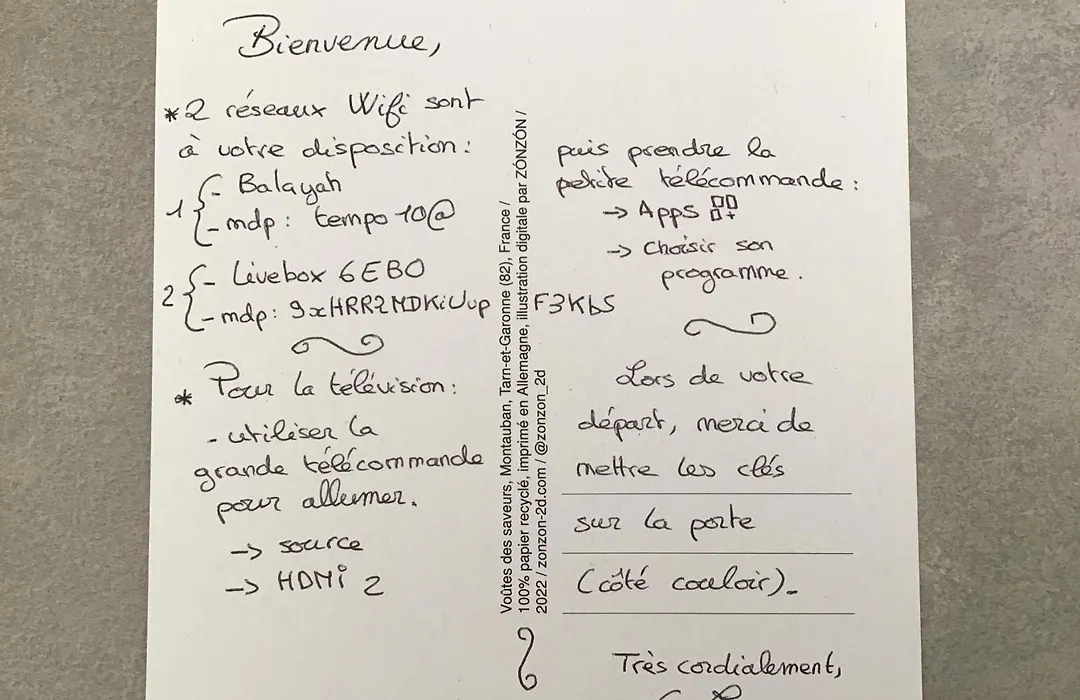 Bienvenue,
* 2 réseaux Wifi sont
à votre disposition :
1 { - Balayah
- mdp : tempo 10@
2 { - Livebox 6EB0
- mdp : 9xHRR2MDKiUup F3KbS
* Pour la télévision :
- utiliser la
grande télécommande
pour allumer.
-> source
-> HDMi 2
Voûtes des saveurs, Montauban, Tarn-et-Garonne (82), France /
100% papier recyclé, imprimé en Allemagne, illustration digitale par ZÓNZÓN /
2022 / zonzon-2d.com / @zonzon_2d
puis prendre la
petite télécommande :
-> Apps
-> Choisir son
programme.
Lors de votre
départ, merci de
mettre les clés
sur la porte
(côté couloir).
Très cordialement,